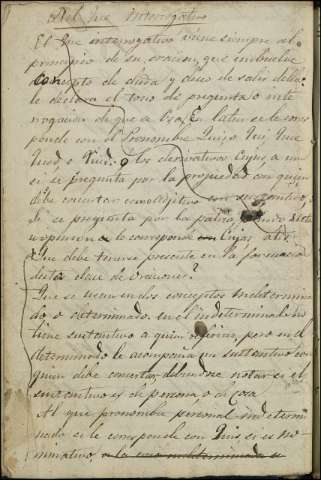 Del Que Interrogativo
El Que interrogativo viene siempre al
principio de su oracion, que embuelve
concepto de duda y deseo de salir della
le declara el tono de pregunta o inte
rrogacion de que a Vsa. En latin se le corres
ponde con el Pronombre Quis, o Qui, Quae
Quod o Quid. O los derivativos Cujus, a um
si se pregunta por la propiedad con quien
debe concertar como adjetivo con sustantivo,
Si se pregunta por la patria,
u opinion se le corresponde Cujas atis.
Que debe tenerse presente en la formacion
desta clase de Oraciones?
Que se usen en dos conceptos indetermina
do o determinado. en el indeterminado no
tiene sustantivo a quien referirse, pero en el
determinado le acompaña un sustantivo con
quien debe concertar, debiendose notar si el
sustantivo es de persona o de Cosa.
Al que pronombre personal indetermi
nado se le corresponde con Quis, si es no
minativo, o la cosa indeterminada si